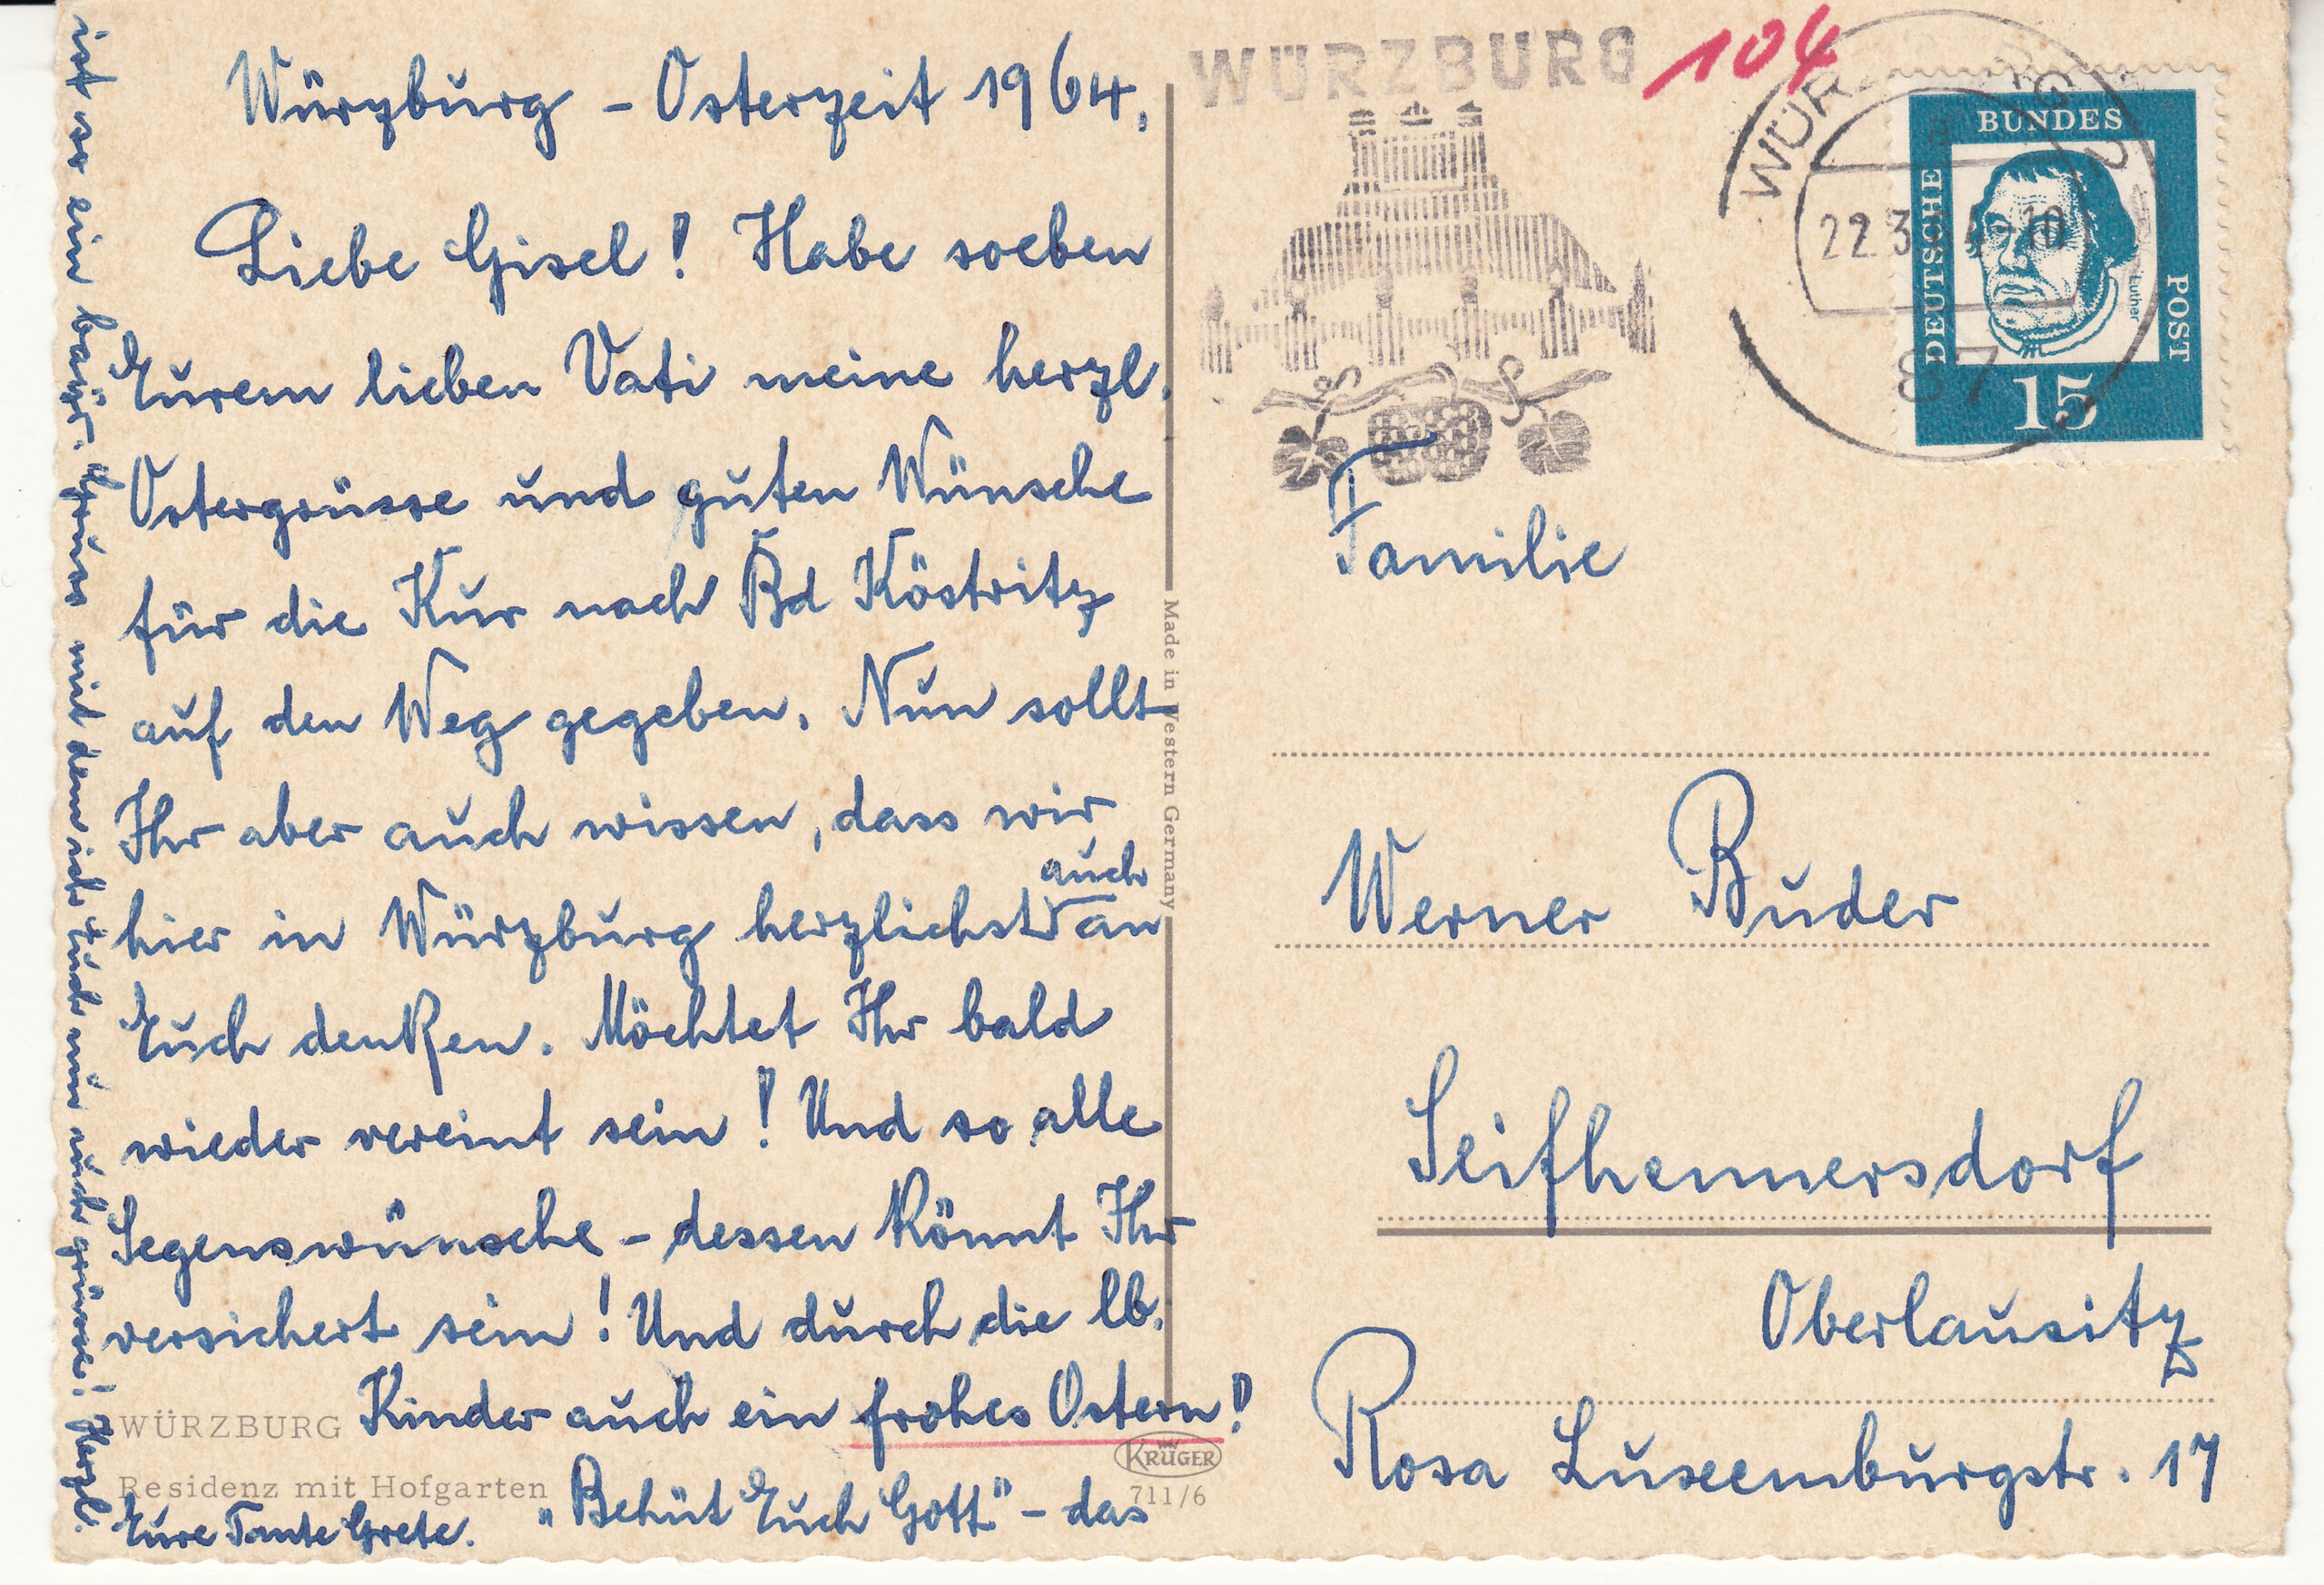 Würzburg - Osterzeit 1964.
Liebe Gisel! Habe soeben
Eurem lieben Vati meine herzl.
Ostergrüsse und guten Wünsche
für die Kur nach Bd Köstritz
auf den Weg gegeben. Nun sollt
Ihr aber auch wissen, dass wir
auch
hier in Würzburg herzlichst an
Euch denken. Möchtet Ihr bald
wieder vereint sein! Und so alle
Segenswünsche - dessen könnt Ihr
versichert sein! Und durch die lb.
Kinder auch ein frohes Ostern!
"Behüt Euch Gott" - das
ist so ein bayr. Gruss mit dem ich Euch nun auch grüsse! Herzl.
Eure Tante Grete.
WÜRZBURG
Residenz mit Hofgarten
KRÜGER
711/6
Made in Western Germany
WÜRZBURG
104
22.3.64-10
87
DEUTSCHE
BUNDES
POST
Luther
15
Familie
Werner Buder
Seifhennersdorf
Oberlausitz
Rosa Luxemburgstr. 17